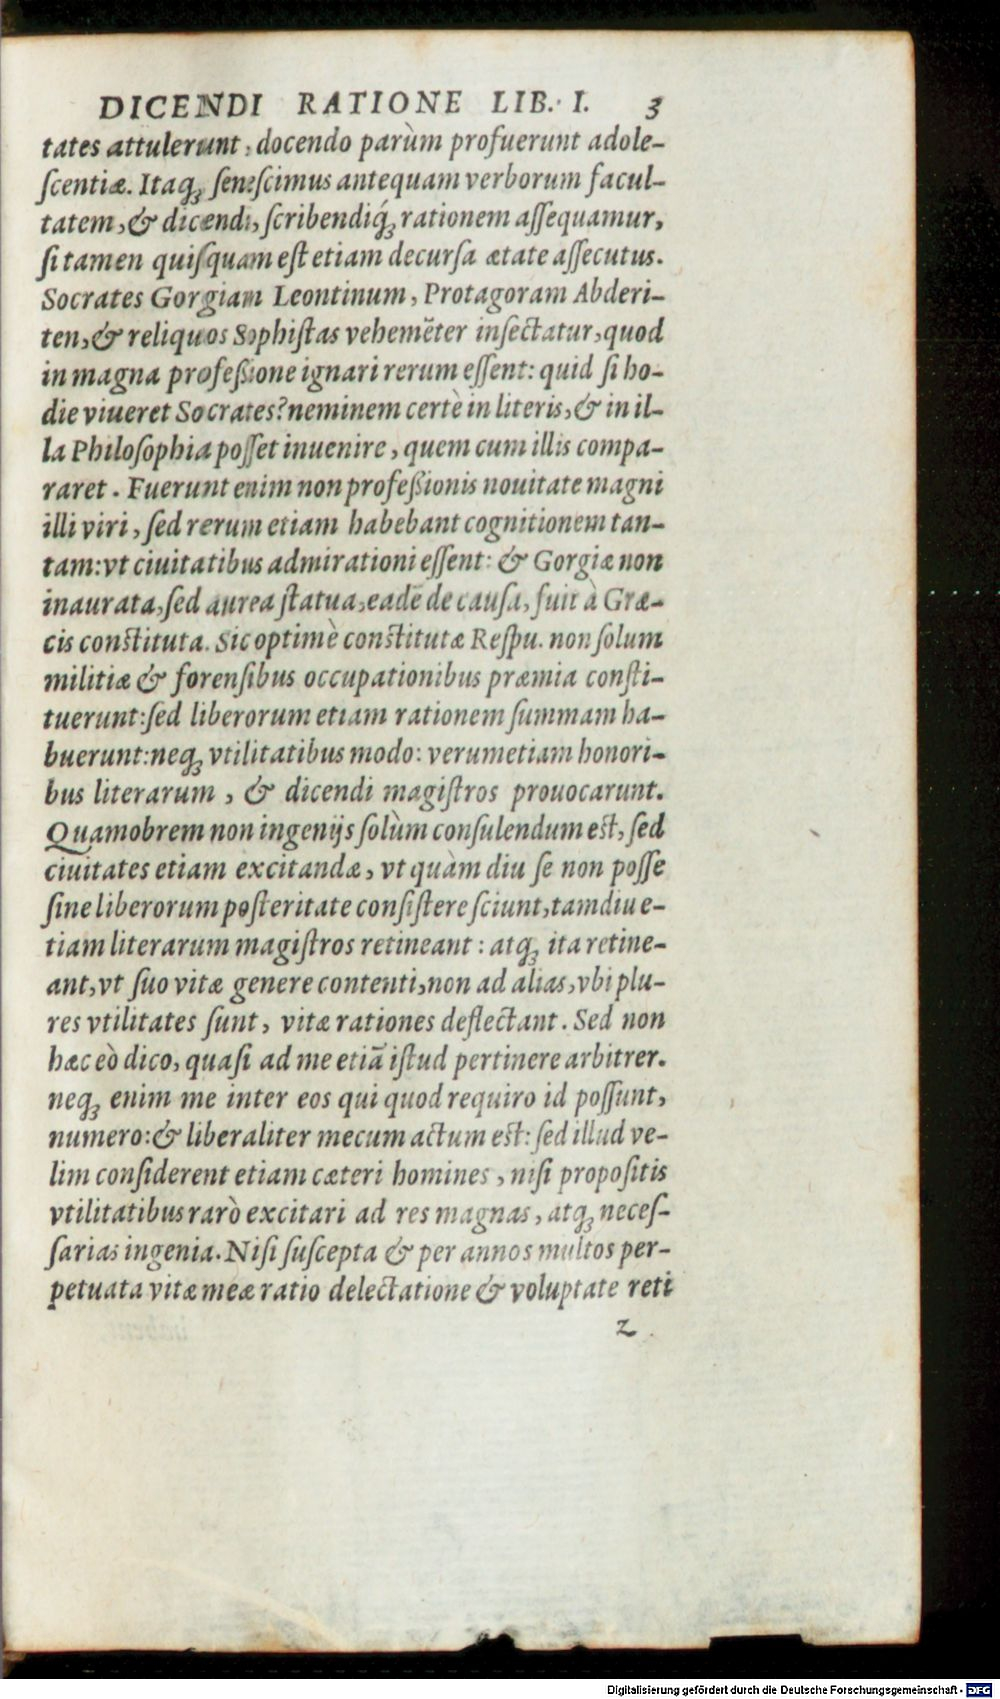 DICENDI RATIONE LIB. I. 3
tates attulerunt, docendo parùm profuerunt adole-
ſcentiæ. Itaq; ſeneſcimus antequam verborum facul-
tatem, & dicendi, ſcribendiq́; rationem aſſequamur,
ſi tamen quiſquam eſt etiam decurſa ætate aſſecutus.
Socrates Gorgiam Leontinum, Protagoram Abderi-
ten, & reliquos Sophiſtas vehemẽter inſectatur, quod
in magna profeßione ignari rerum eſſent: quid ſi ho-
die viueret Socrates? neminem certè in literis, & in il-
la Philoſophia poſſet inuenire, quem cum illis compa-
raret. Fuerunt enim non profeßionis nouitate magni
illi viri, ſed rerum etiam habebant cognitionem tan-
tam: vt ciuitatibus admirationi eſſent: & Gorgiæ non
inaurata, ſed aurea ſtatua, eadẽ de cauſa, fuit à Græ-
cis conſtituta. Sic optimè conſtitutæ Reſpu. non ſolum
militiæ & forenſibus occupationibus præmia conſti-
tuerunt: ſed liberorum etiam rationem ſummam ha-
buerunt: neq; vtilitatibus modo: verumetiam honori-
bus literarum, & dicendi magiſtros prouocarunt.
Quamobrem non ingenijs ſolùm conſulendum eſt, ſed
ciuitates etiam excitandæ, vt quàm diu ſe non poſſe
ſine liberorum poſteritate conſiſtere ſciunt, tamdiu e-
tiam literarum magiſtros retineant: atq; ita retine-
ant, vt ſuo vitæ genere contenti, non ad alias, vbi plu-
res vtilitates ſunt, vitæ rationes deflectant. Sed non
hæc eò dico, quaſi ad me etiã iſtud pertinere arbitrer.
neq; enim me inter eos qui quod requiro id poſſunt,
numero: & liberaliter mecum actum eſt: ſed illud ve-
lim conſiderent etiam cæteri homines, niſi propoſitis
vtilitatibus rarò excitari ad res magnas, atq; neceſ-
ſarias ingenia. Niſi ſuſcepta & per annos multos per-
petuata vitæ meæ ratio delectatione & voluptate reti
2
Digitalisierung gefördert durch die Deutsche Forschungsgemeinschaft - DFG